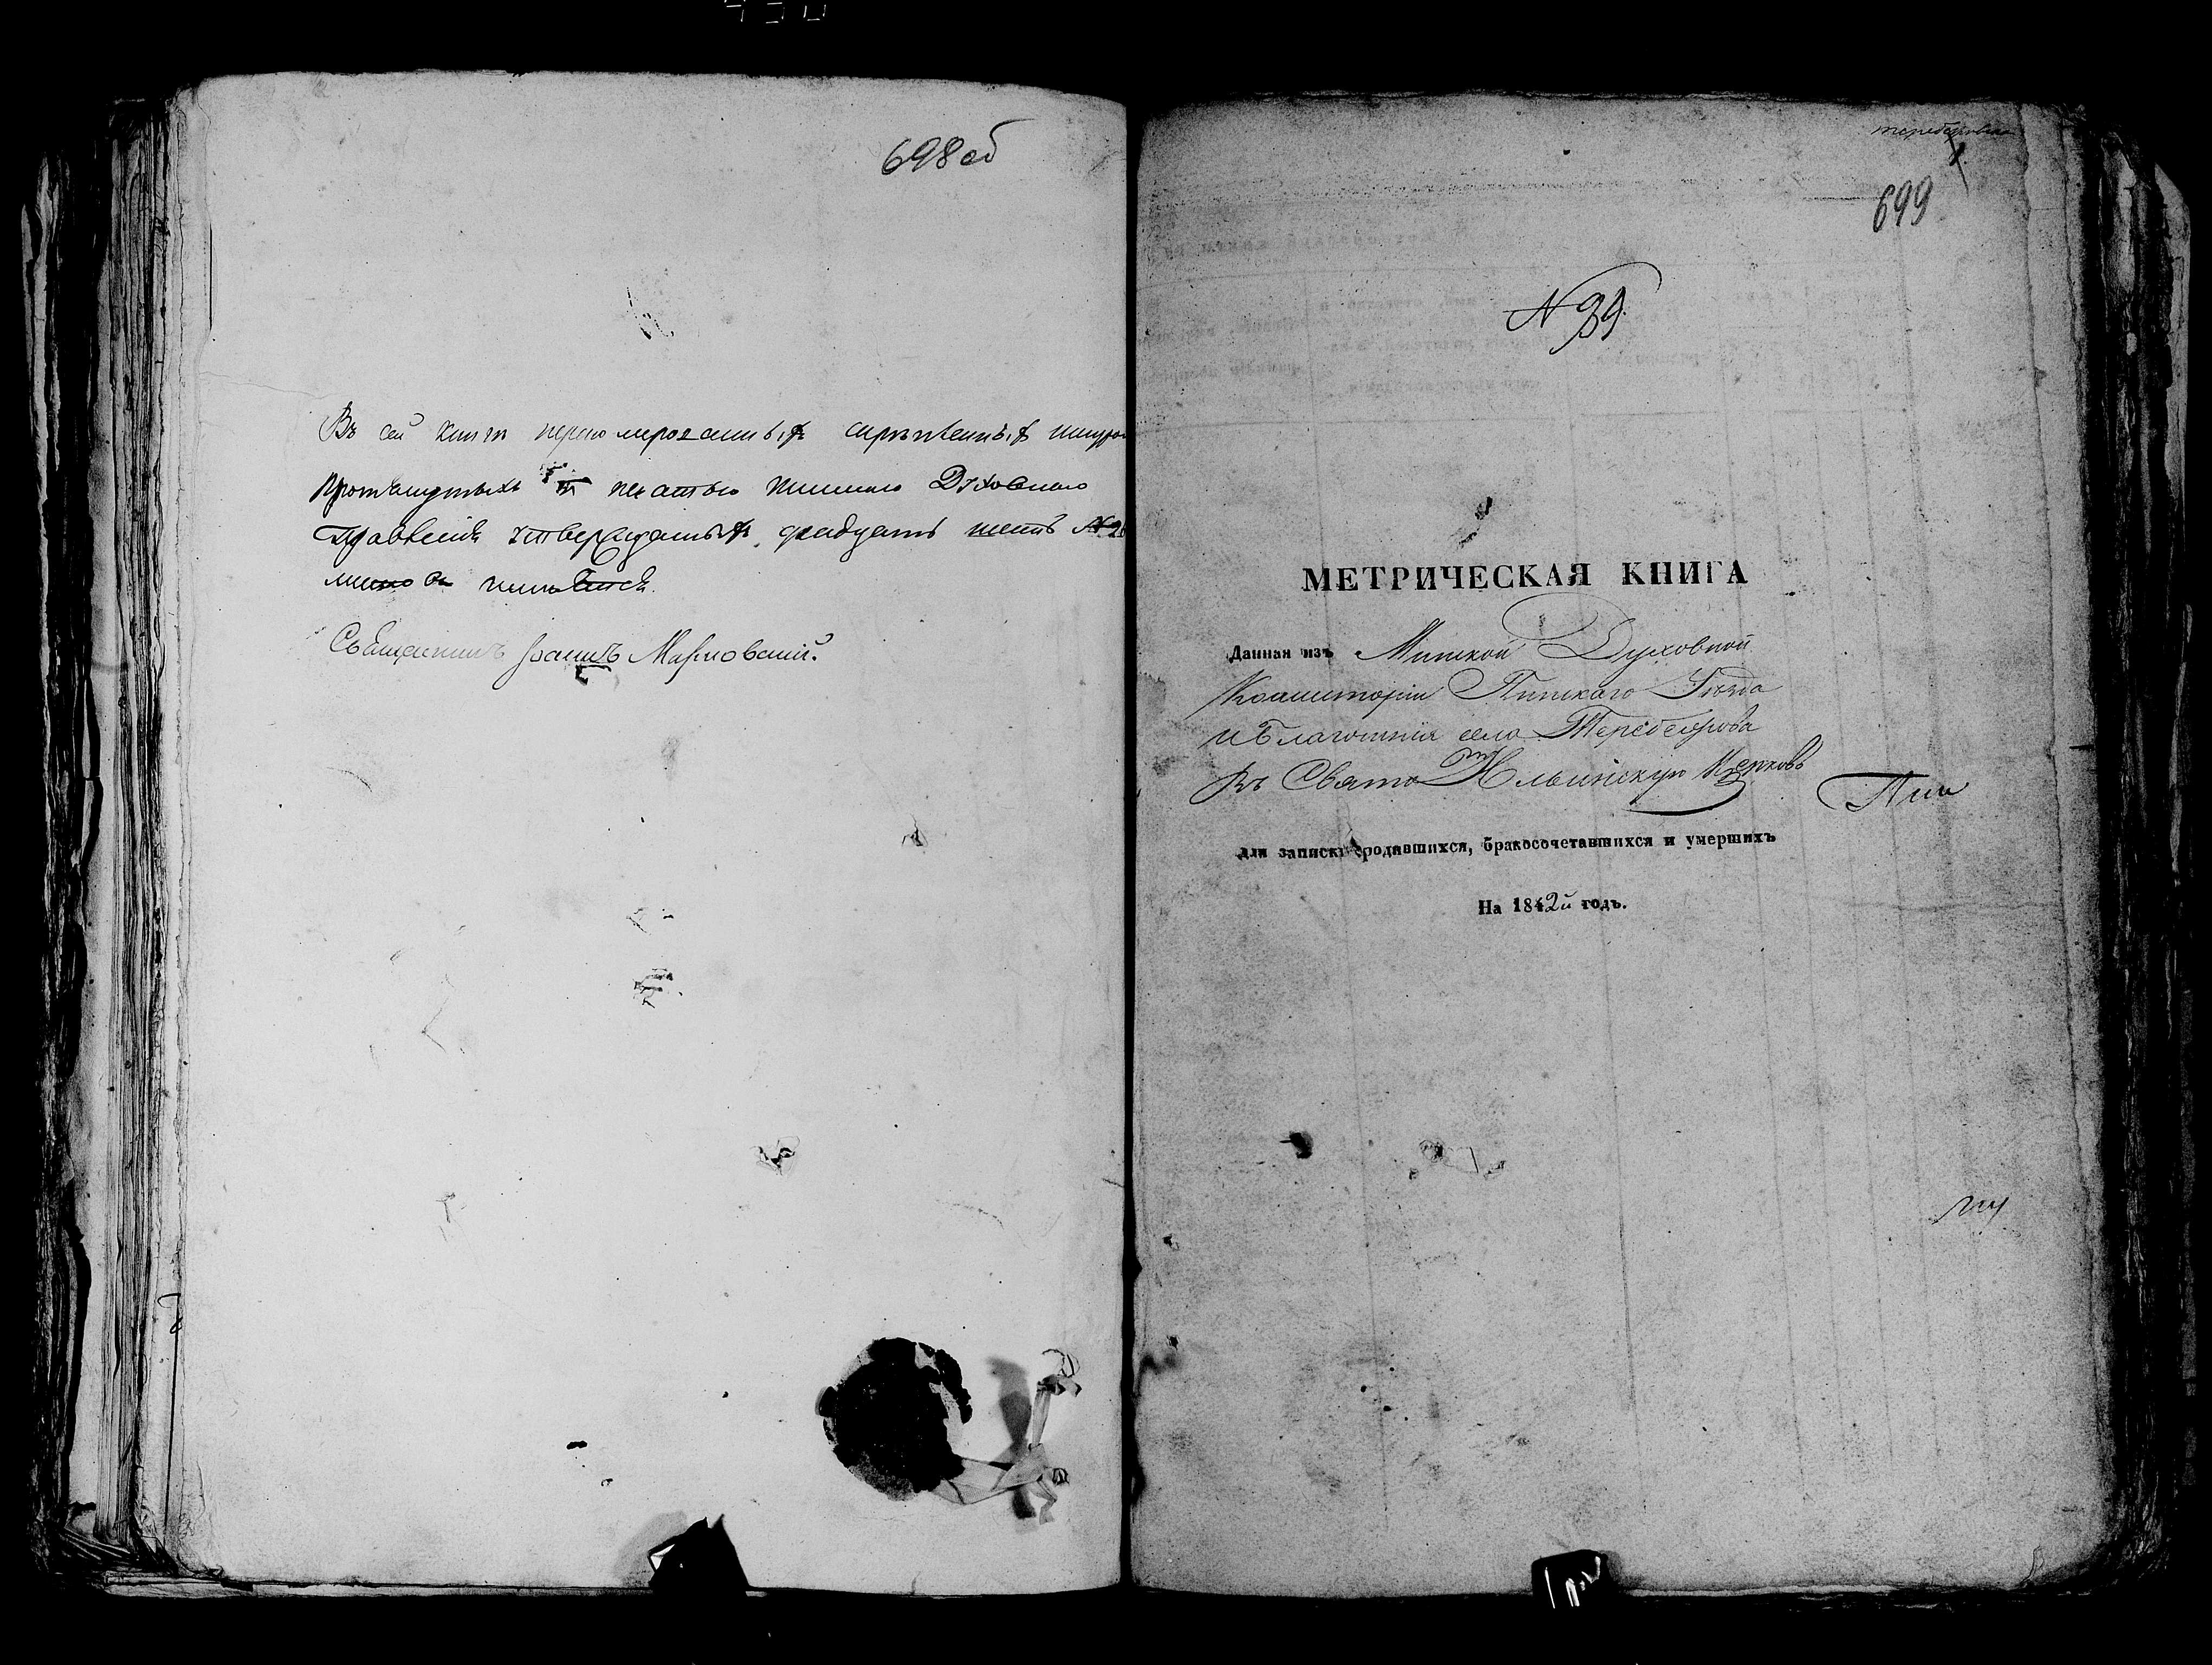 698 об
Въ сей книгѣ перенумерованныхъ скрѣпленныхъ шнуро
протянутыхъ и печатью Духовнаго
Правленія утвержденныхъ двадцать шесть №26
листовъ
Священникъ Марковскій.
699
N 39.
МЕТРИЧЕСКАЯ КНИГА
Данная изъ Минской Духовной
Консисторіи Пинскаго Уѣзда
и Благочинія села Теребежова
въ Свято Ильинскую Церковь
Пин
для записки родившихся, бракосочетавшихся и умершихъ
На 1842й годъ.